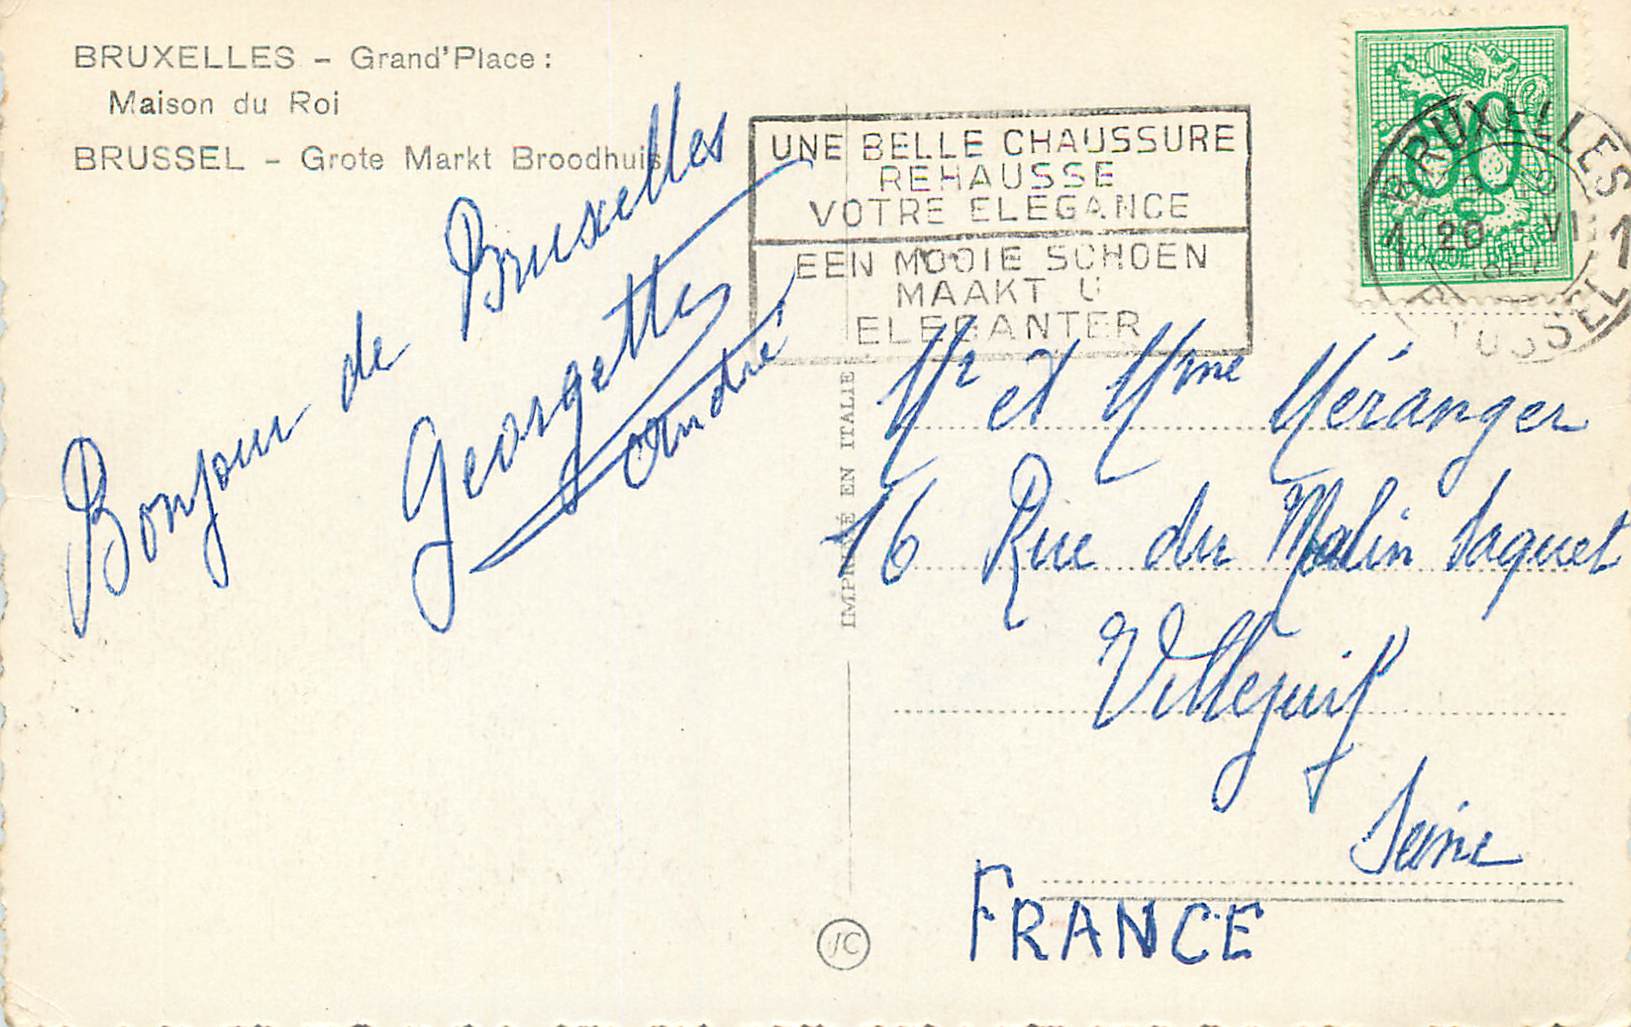 BRUXELLES – Grand'Place :
Maison du Roi
BRUSSEL – Grote Markt Broodhuis
Bonjour de Bruxelles
Georgette
André
UNE BELLE CHAUSSURE
REHAUSSE
VOTRE ELEGANCE
EEN MOOIE SCHOEN
MAAKT U
ELEGANTER
80
BELGIE
BRUXELLES
1 20 VI 1
BRUSSEL
IMPRIMÉ EN ITALIE
Mr et Mme Méranger
16 Rue du Malin Saquet
Villejuif
Seine
FRANCE
JC